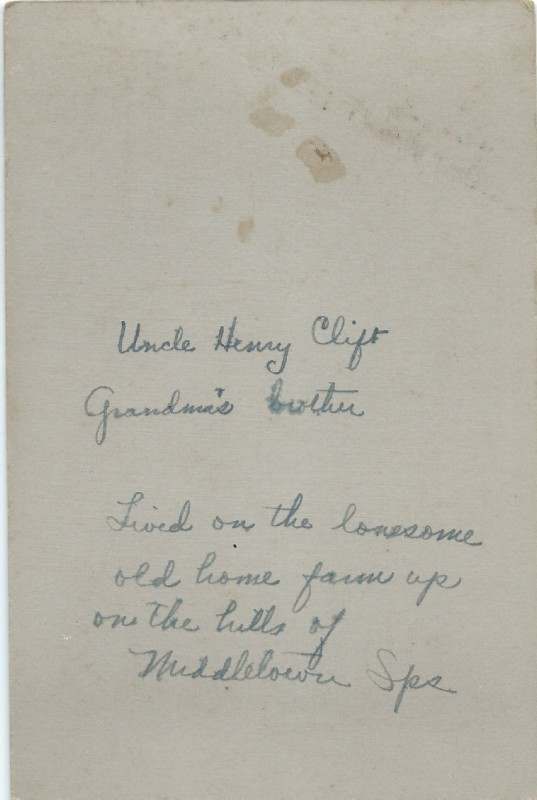 Uncle Henry Clift
Grandma's brother
Lived on the lonesome
old home farm up
on the hills of
Middletown Sps